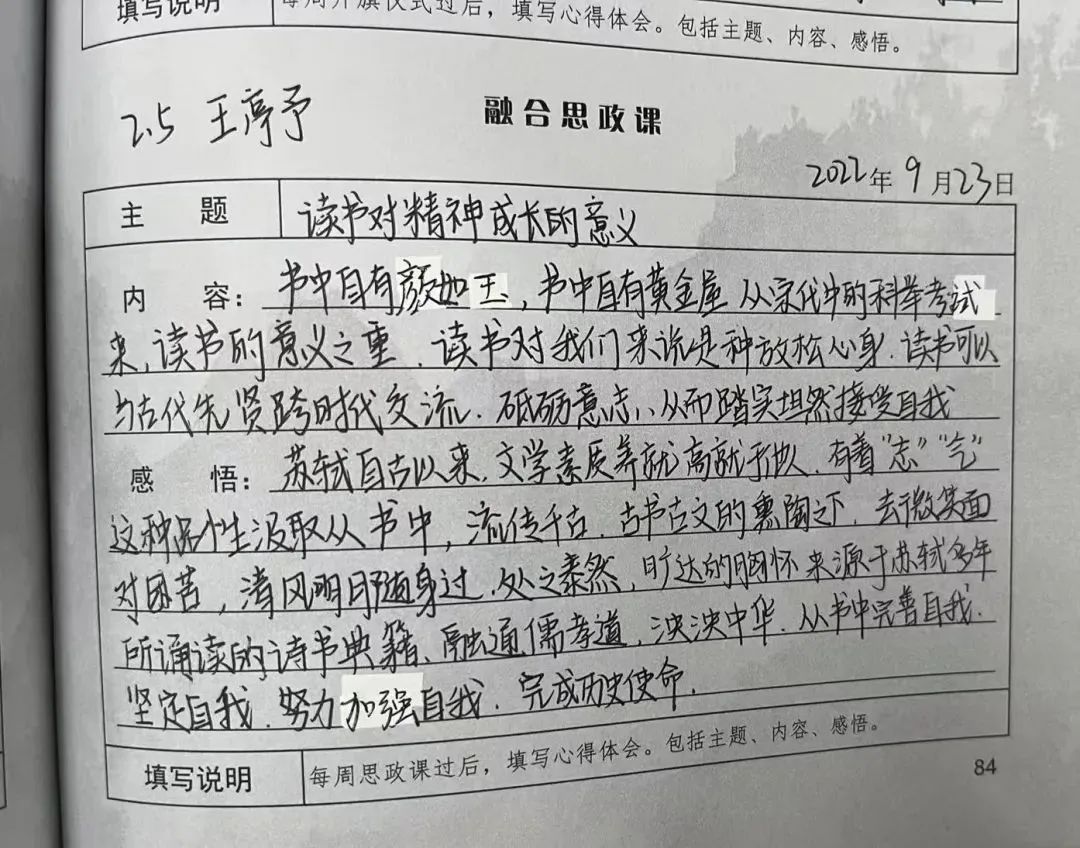 填写说明 每周升旗仪式过后，填写心得体会。包括主题、内容、感悟。
2.5 王渟予
融合思政课
2022年9月23日
主 题 读书对精神成长的意义
内 容：书中自有颜如玉，书中自有黄金屋 从宋代中的科举考试
来，读书的意义之重．读书对我们来说是种放松心身．读书可以
与古代先贤跨时代交流．砥砺意志、从而踏实坦然接受自我
感 悟：苏轼自古以来，文学素质养就高就于他人．有着“志”“气”
这种品性汲取从书中，流传千古．古书古文的熏陶之下．去微笑面
对困苦，清风明月随身过．处之泰然，旷达的胸怀来源于苏轼多年
所诵读的诗书典籍、融通儒孝道，泱泱中华．从书中完善自我．
坚定自我．努力加强自我．完成历史使命．
填写说明 每周思政课过后，填写心得体会。包括主题、内容、感悟。
84